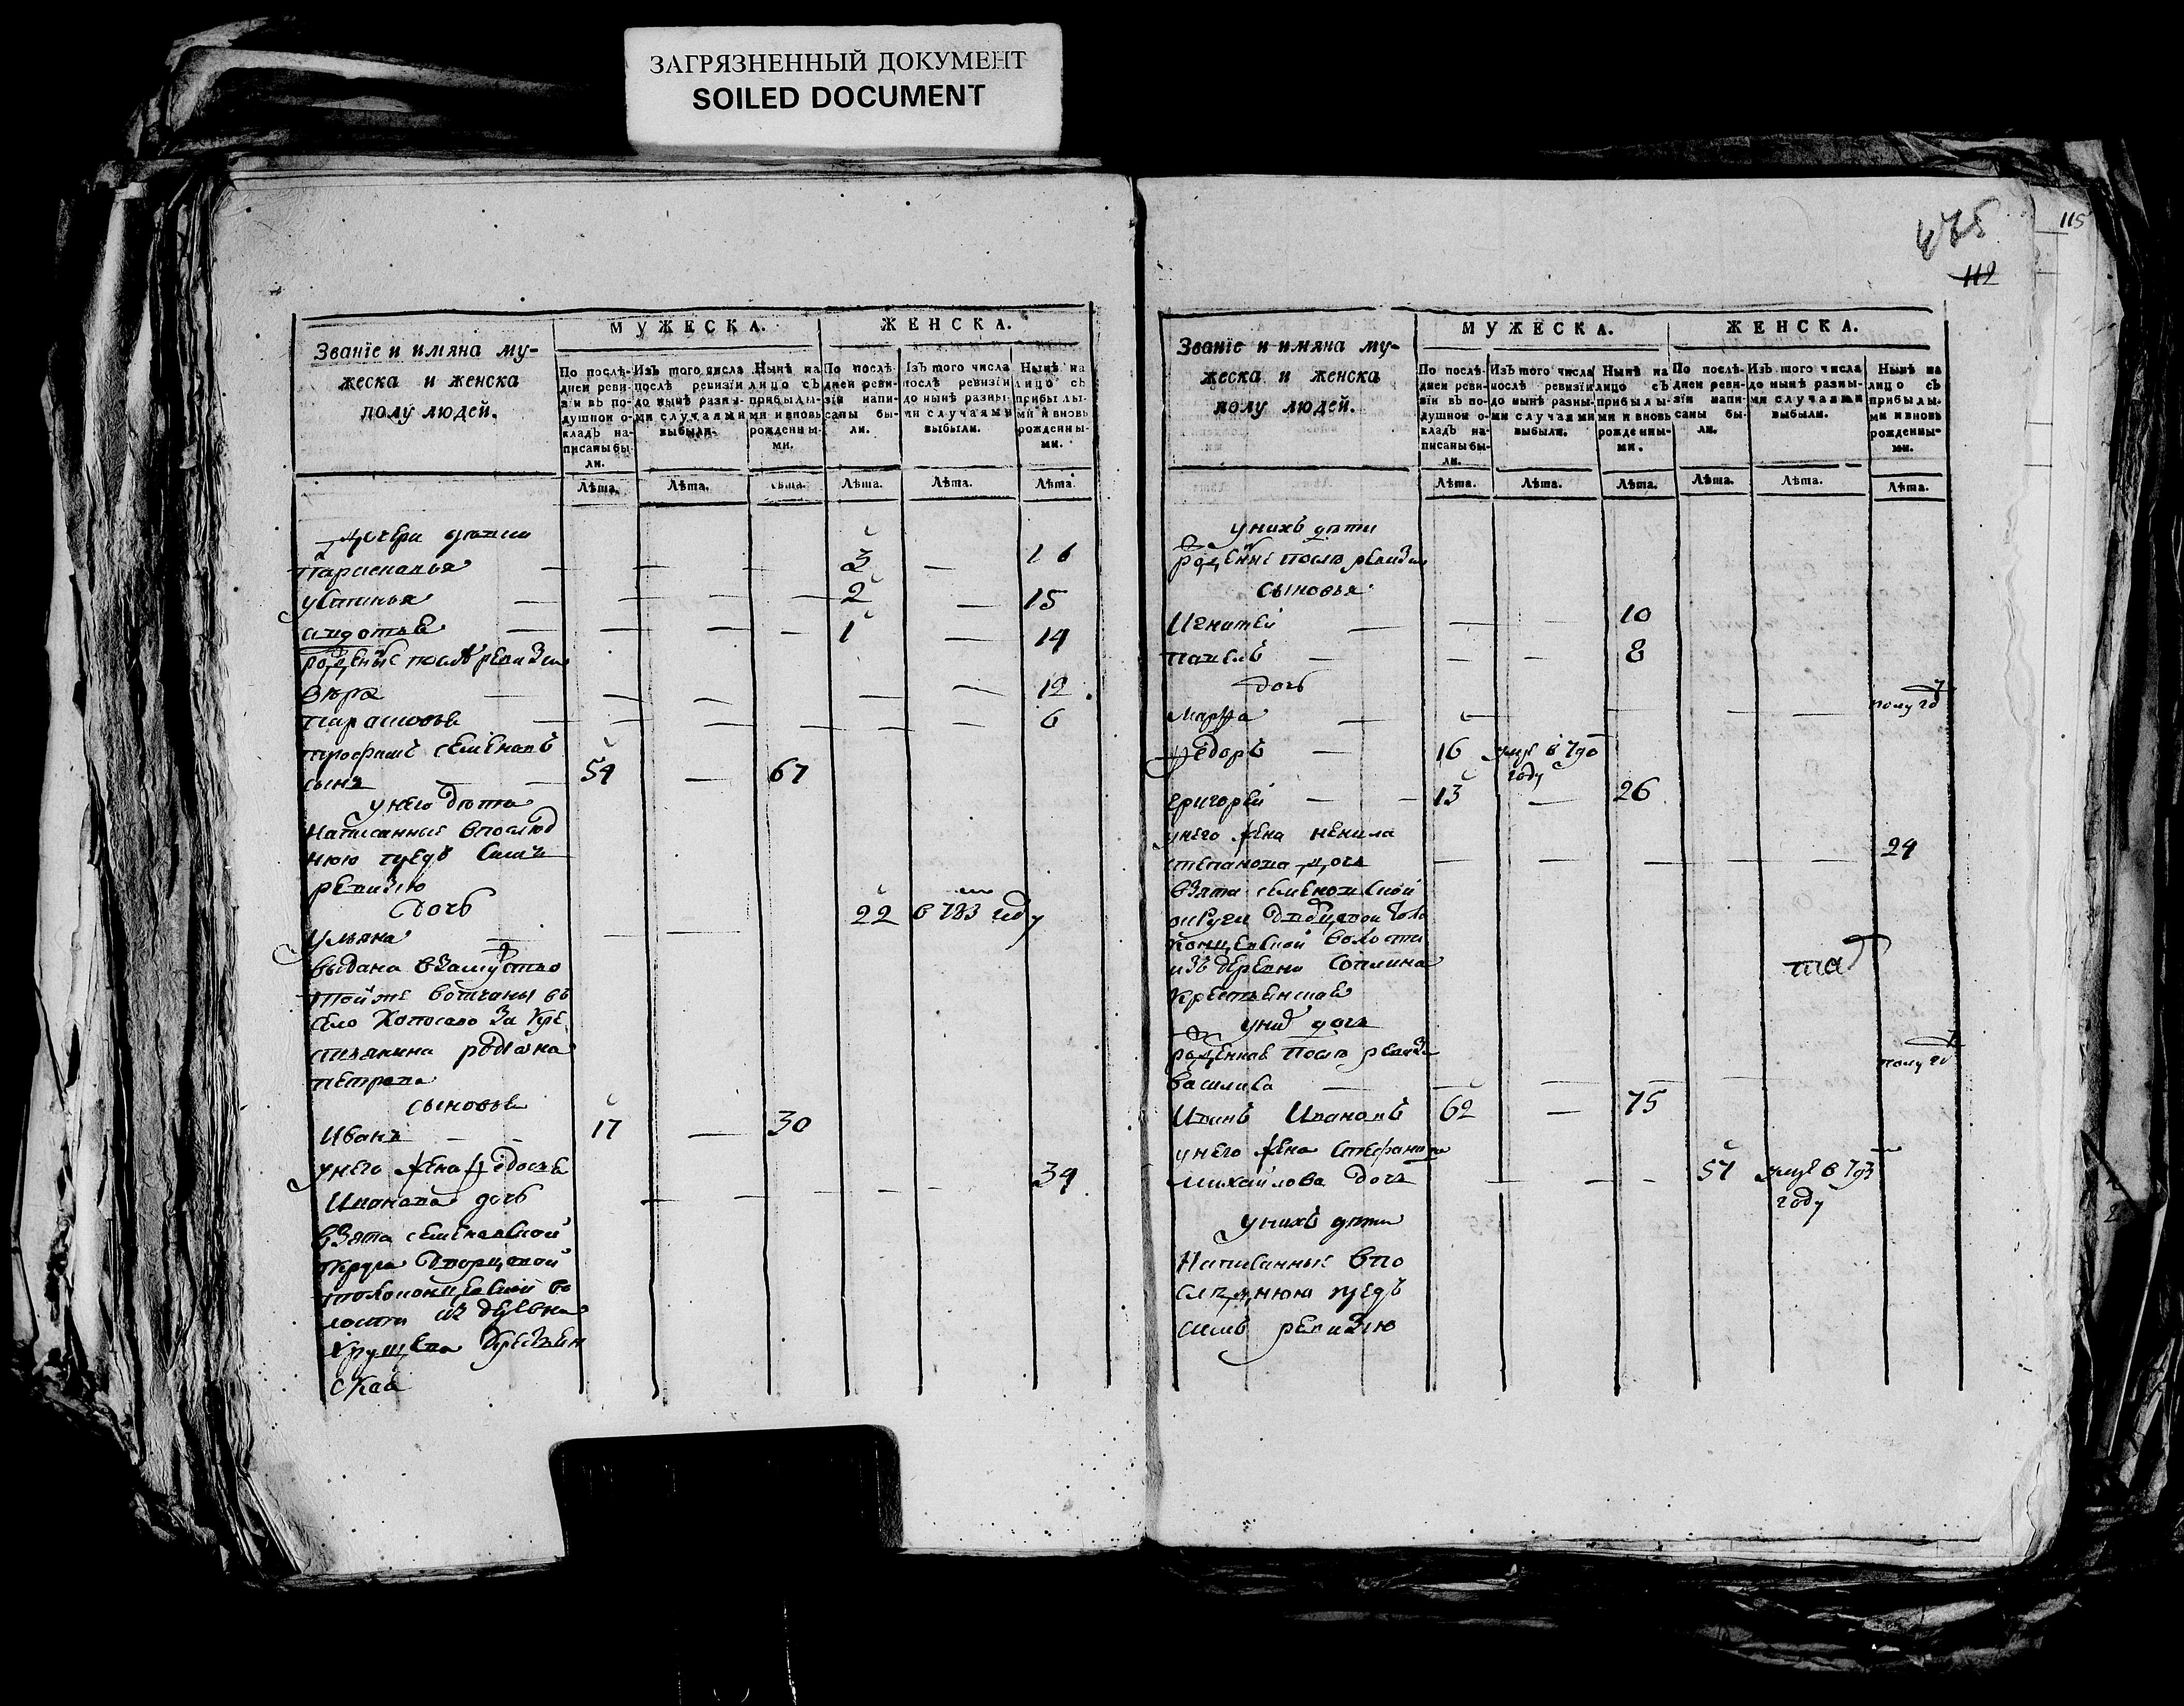 ЗАГРЯЗНЕННЫЙ ДОКУМЕНТ
SOILED DOCUMENT
Званіе и имяна му-
жеска и женска
полу людей.
МУЖЕСКА.
ЖЕНСКА.
По послѣ-
дней реви-
зіи въ по-
душной о-
кладъ на-
писаны бы-
ли.
Изъ того числа
послѣ ревизіи
до нынѣ разны-
ми случаями
выбыли.
Нынѣ на
лицо съ
прибылы-
ми и вновь
рожденны-
ми.
По послѣ-
дней реви-
зіи напи-
саны бы-
ли.
Изъ того числа
послѣ ревизіи
до нынѣ разны-
ми случаями
выбыли.
Нынѣ на
лицо съ
прибылы-
ми и вновь
рожденны-
ми.
Лѣта. Лѣта. Лѣта. Лѣта. Лѣта. Лѣта.
дочери
3 — 16
устинья — — — — 2 — 15
авдотья — — — — 1 — 14
роденые послѣ ревизии
вѣра — — — — — 12
парасковья — — — — — — 6
трофимъ семеновъ
сынъ — — 54 — 67
у него дѣти
написанные в послѣд
нюю предъ симъ
ревизию
дочь
ульяна — — — 22 в 783 году
выдана взамуство
тойже вотчины въ
село за кре
стьянина родиона
петрова
сыновья
Иванъ — — 17 — 30
у него жена федосья
Иванова дочь — — — — — 34
взята семеновской
округи дворцовой
толоконцевской во
лости из деревни
хрущева крестьян
ская
115
475
112
Званіе и имяна му-
жеска и женска
полу людей.
МУЖЕСКА.
ЖЕНСКА.
По послѣ-
дней реви-
зіи въ по-
душной о-
кладъ на-
писаны бы-
ли.
Изъ того числа
послѣ ревизіи
до нынѣ разны-
ми случаями
выбыли.
Нынѣ на
лицо съ
прибылы-
ми и вновь
рожденны-
ми.
По послѣ-
дней реви-
зіи напи-
саны бы-
ли.
Изъ того числа
до нынѣ разны-
ми случаями
выбыли.
Нынѣ на
лицо съ
прибылы-
ми и вновь
рожденны-
ми.
Лѣта. Лѣта. Лѣта. Лѣта. Лѣта. Лѣта.
у нихъ дѣти
роденые послѣ ревизии
сыновья
Игнатей — — — 10
павелъ — — — 8
дочь
марфа — — — — — полу год
федоръ — 16 умре в 790
году
григорей — — 13 — 26
у него жена ненила
степанова дочь — — — — — 24
взята семеновской
округи дворцовой толо
концевской волости
изъ деревни
крестьянская
у них дочь
роденная послѣ ревизи
василиса — — — — — полу год
Иванъ Ивановъ 62 — 75
у него жена стефанида
михайлова дочь — — — 57 умре в 793
году
у нихъ дѣти
Написанные в по
слѣднюю предъ
симъ ревизию